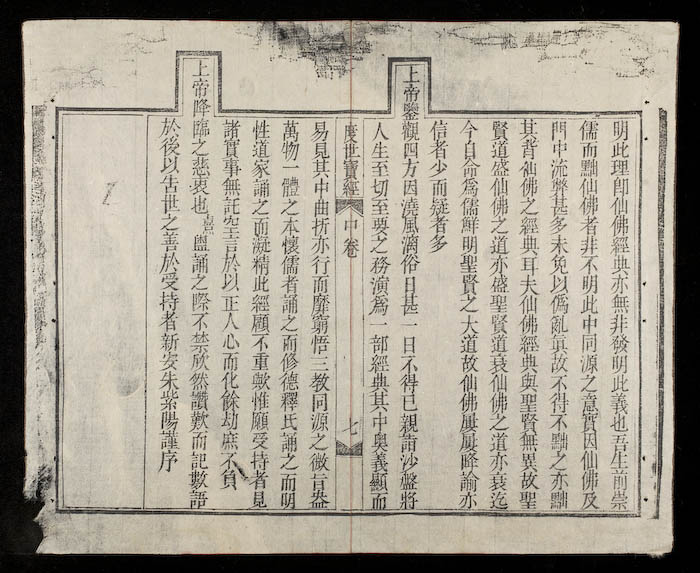 明此理即仙佛經典亦無非發明此義也吾生前崇
儒而黜仙佛者非不明此中同源之意實因仙佛及
門中流弊甚多未免以僞亂眞故不得不黜之亦黜
其背仙佛之經典耳夫仙佛經典與聖賢無異故聖
賢道盛仙佛之道亦盛聖賢道衰仙佛之道亦衰迄
今自命爲儒鮮明聖賢之大道故仙佛屢屢降諭亦
信者少而疑者多
上帝鑒觀四方因澆風漓俗日甚一日不得已親詣沙盤將
人生至切至要之務演爲一部經典其中奧義顯而
度世寶經 中卷 七
易見其中曲折亦行而靡窮悟三教同源之微旨叅
萬物一體之本懷儒者誦之而修德釋氏誦之而明
性道家誦之而凝精此經顧不重歟惟願受持者見
諸實事無託空言於以正人心而化餘劫庶不負
上帝降臨之悲衷也熹盥誦之際不禁欣然讚歎而記數語
於後以告世之善於受持者新安朱紫陽謹序